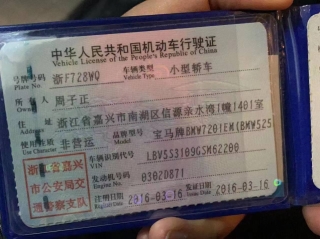 中华人民共和国机动车行驶证
Vehicle License of the People's Republic of China
号牌号码 浙F728WQ 车辆类型 小型轿车
Plate No. Vehicle Type
所有人 周子正
Owner
住址 浙江省嘉兴市南湖区信源亲水湾1幢1401室
Address
使用性质 非营运 品牌型号 宝马牌BMW7201EM(BMW525
Use Character Model
浙江省嘉兴市公安局交通警察支队
车辆识别代号 LBVSS3109GSM62200
VIN
发动机号码 03020871
Engine No.
注册日期 2016-03-16 发证日期 2016-03-16
Register Date Issue Date